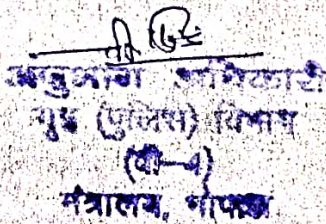 अनुभाग अधिकारी
गृह (पुलिस) विभाग
(बी-4)
मंत्रालय, भोपाल